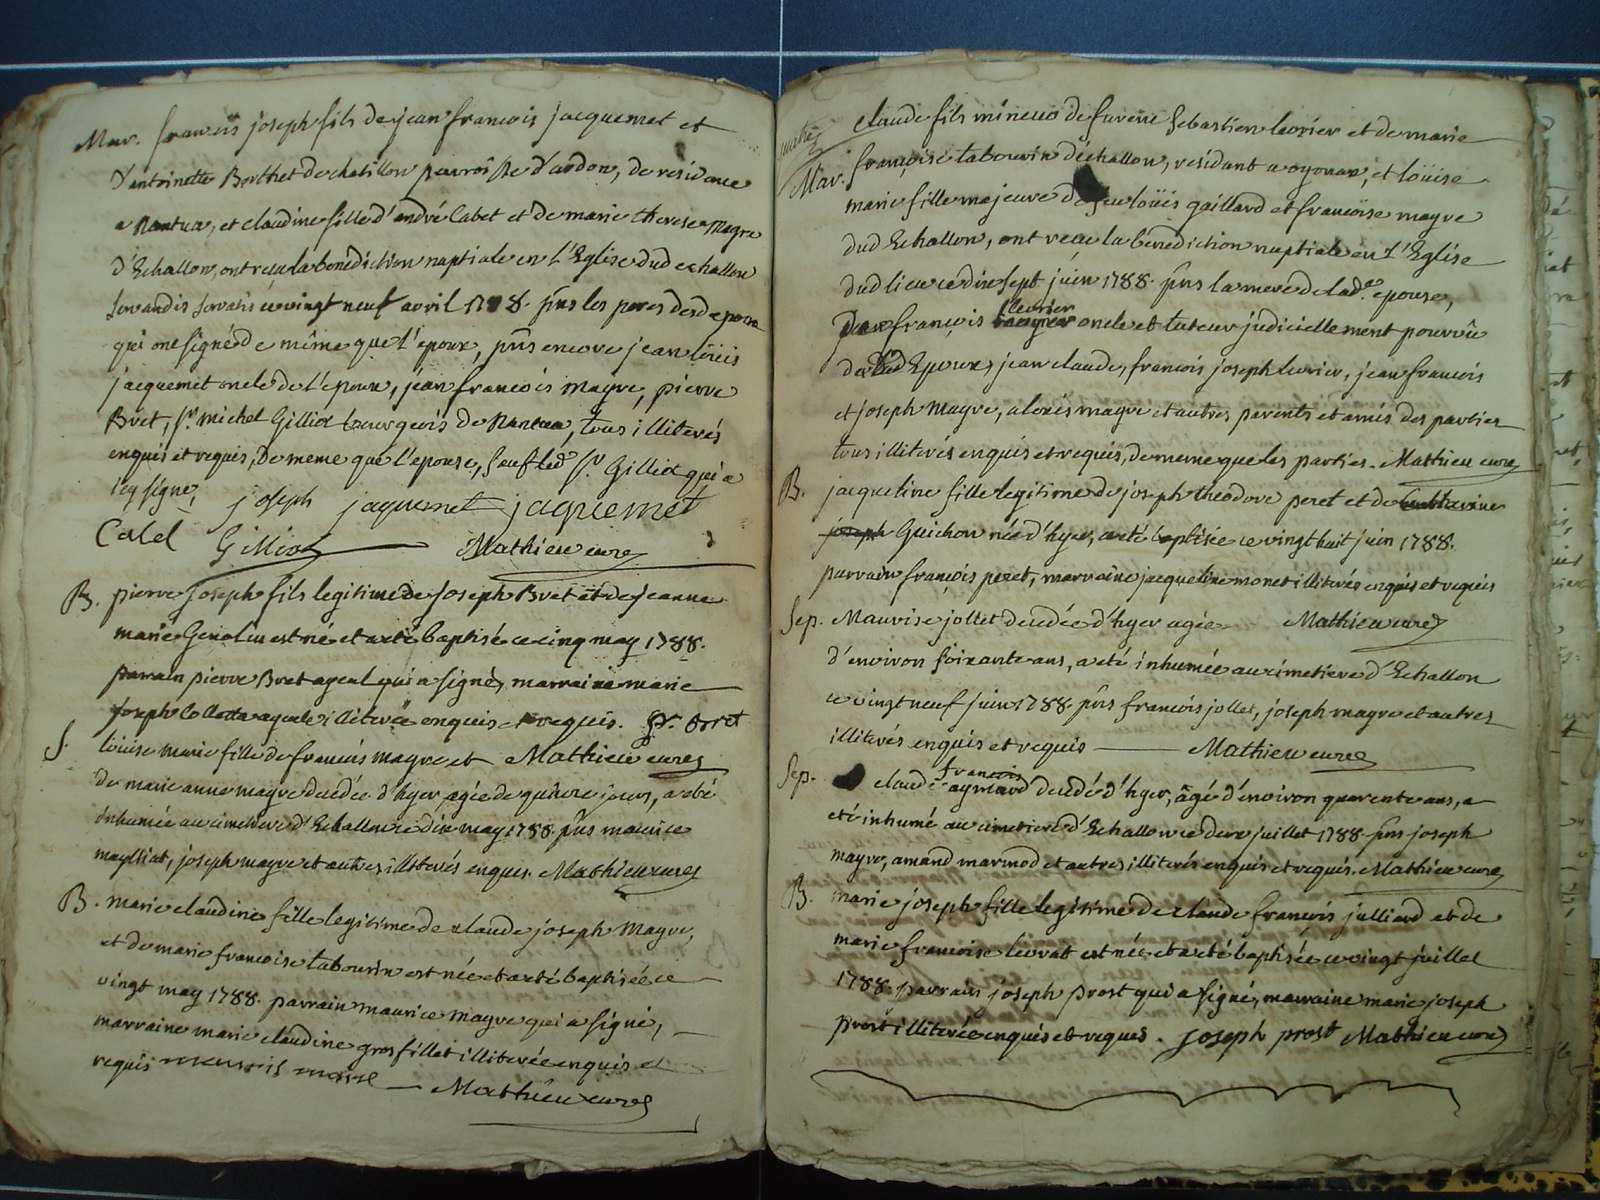 Mar. francois joseph fils de jean francois jacquemet et
d'antoinette Berthet de chatillon parroisse d'ardon, de residence
a Nantua, et claudine fille d'andré Cabet et de marie therese Magre
d'Echallon, ont recu la benediction nuptiale en l'Eglise dud echallon
servandis servatis ce vingt neuf avril 1788. pñs les peres desd epoux
qui ont signé de même que l'epoux, pñs encore jean loüis
jacquemet oncle de l'epoux, jean francois mayre, pierre
Bret, sr. michel Gilliot bourgeois de Nantua, tous illiterés
enquis et requis, de meme que l'epouse, sauf led sr Gilliot qui a
icy signé,
joseph jaquemet jaquemet
Calel Gilliot Mathieu curé
B. pierre joseph fils legitime de joseph Bret et de jeanne
marie est né et a eté baptisé ce cinq may 1788.
parrain pierre Bret ayeul qui a signé, marraine marie
joseph ayeule illiterée enquise et requis. pr. Bret
S. loüise marie fille de francois mayre et Mathieu curé
de marie anne mayre decedée d'hyer agée de quinze jours, a eté
inhumée au cimetiere d'Echallon ce dix may 1788. pñs maurice
maylliat, joseph mayre et autres illiterés enquis. Mathieu curé
B. marie claudine fille legitime de claude joseph Mayre,
et de marie francoise tabourin est née et a eté baptisée ce
vingt may 1788. parrain maurice mayre qui a signé,
marraine marie claudine grosfillet illiterée enquis et
requis Mathieu curé
claude fils mineur de furent Sebastien levrier et de marie
Mar. françoise tabourin d'échallon, residant a oyonax, et loüise
marie fille majeure de feu loüis gaillard et francoise mayre
dud Echallon, ont recu la benediction nuptiale en l'Eglise
dud lieu ce dix sept juin 1788. pñs la mere de lad.e epouse,
levrier
jean françois oncle et tuteur judiciellement pourvû
dud Epoux, jean claude, francois joseph levrier, jean francois
et joseph Mayre, alexis mayre et autres parents et amis des parties
tous illiterés enquis et requis, de meme que les parties. Mathieu curé
B. jacqueline fille legitime de joseph theodore peret et de
joseph Guichon née d'hyer, a eté baptisée ce vingt huit juin 1788.
parrain françois peret, marraine jacqueline monet illiterés enquis et requis
Sep. Maurise jollet decedée d'hyer agée Mathieu curé
d'environ soixante ans, a eté inhumée au cimetiere d'Echallon
ce vingt neuf juin 1788. pñs francois jollet, joseph mayre et autres
illiterés enquis et requis Mathieu curé
francois
Sep. claude aymard decedé d'hyer, âgé d'environ quarente ans, a
eté inhumé au cimetiere d'Echallon ce deux juillet 1788. pñs joseph
mayre, amand marmod et autres illiterés enquis et requis. Mathieu curé
B. marie joseph fille legitime de claude françois julliard et de
marie francoise levrat est née et a eté baptisée ce vingt juillet
1788. parrain joseph prost qui a signé, marraine marie joseph
prost illiterée enquis et requis. joseph prost Mathieu curé